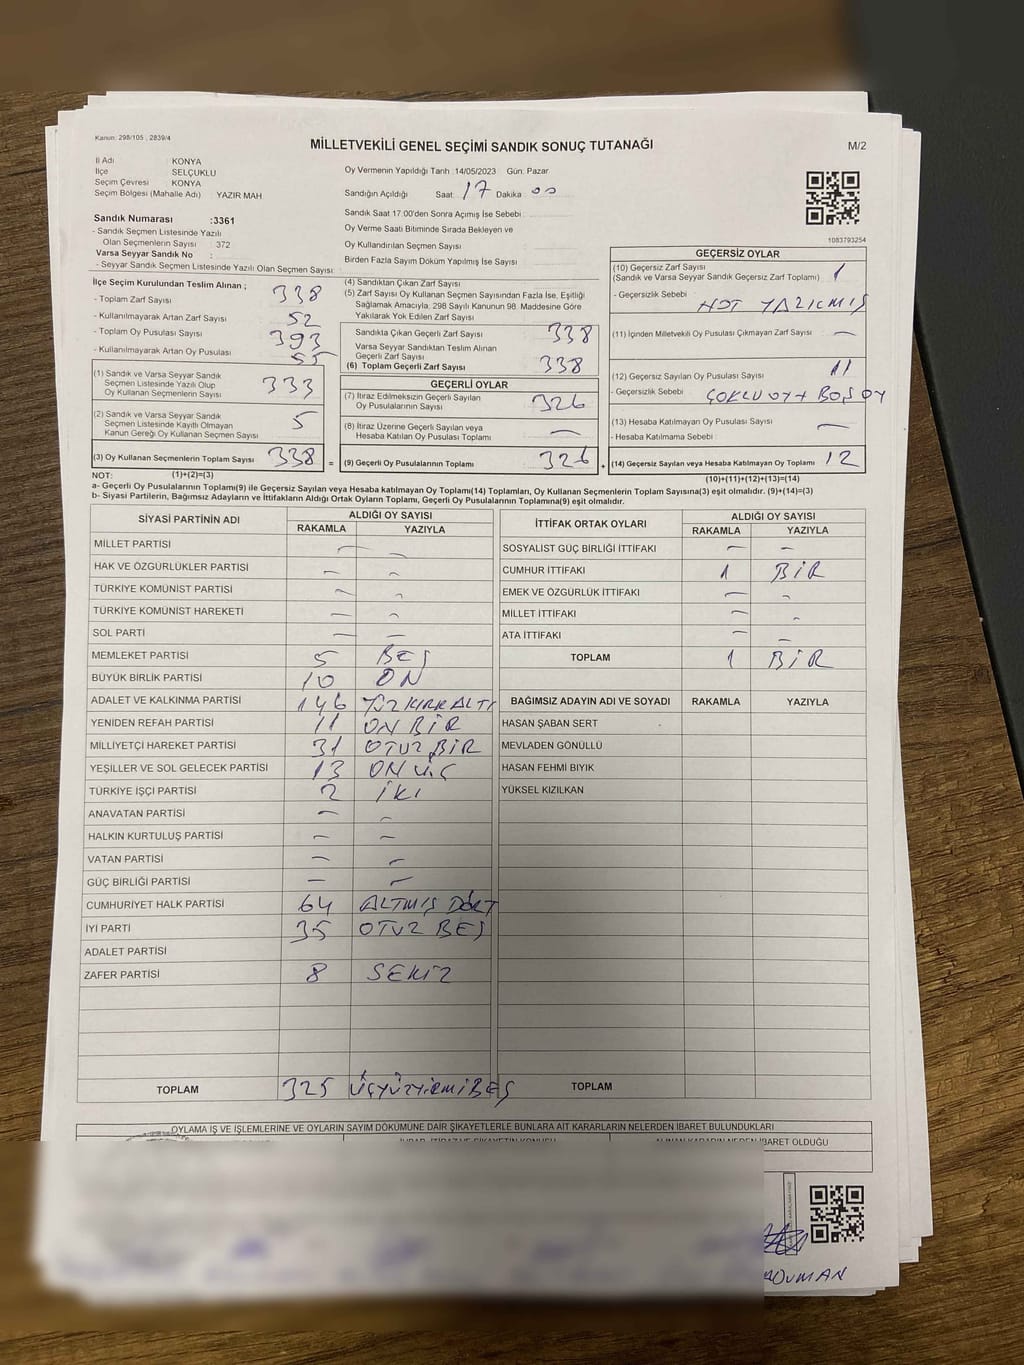 Kanun: 298/105 , 2839/4
MİLLETVEKİLİ GENEL SEÇİMİ SANDIK SONUÇ TUTANAĞI
M/2
İl Adı KONYA
İlçe SELÇUKLU
Seçim Çevresi KONYA
Seçim Bölgesi (Mahalle Adı) YAZIR MAH
Sandık Numarası :3361
- Sandık Seçmen Listesinde Yazılı
Olan Seçmenlerin Sayısı : 372
Varsa Seyyar Sandık No :
- Seyyar Sandık Seçmen Listesinde Yazılı Olan Seçmen Sayısı :
Oy Vermenin Yapıldığı Tarih :14/05/2023 Gün: Pazar
Sandığın Açıldığı Saat: 17 Dakika 00
Sandık Saat 17.00'den Sonra Açımış İse Sebebi
Oy Verme Saati Bitiminde Sırada Bekleyen ve
Oy Kullandırılan Seçmen Sayısı
Birden Fazla Sayım Döküm Yapılmış İse Sayısı
1083793254
İlçe Seçim Kurulundan Teslim Alınan ;
- Toplam Zarf Sayısı 338
- Kullanılmayarak Artan Zarf Sayısı 52
- Toplam Oy Pusulası Sayısı 393
- Kullanılmayarak Artan Oy Pusulası 55
(1) Sandık ve Varsa Seyyar Sandık
Seçmen Listesinde Yazılı Olup
Oy Kullanan Seçmenlerin Sayısı 333
(2) Sandık ve Varsa Seyyar Sandık
Seçmen Listesinde Kayıtlı Olmayan
Kanun Gereği Oy Kullanan Seçmen Sayısı 5
(3) Oy Kullanan Seçmenlerin Toplam Sayısı 338 =
(4) Sandıktan Çıkan Zarf Sayısı
(5) Zarf Sayısı Oy Kullanan Seçmen Sayısından Fazla İse, Eşitliği
Sağlamak Amacıyla, 298 Sayılı Kanunun 98. Maddesine Göre
Yakılarak Yok Edilen Zarf Sayısı
Sandıkta Çıkan Geçerli Zarf Sayısı 338
Varsa Seyyar Sandıktan Teslim Alınan
Geçerli Zarf Sayısı
(6) Toplam Geçerli Zarf Sayısı 338
GEÇERLİ OYLAR
(7) İtiraz Edilmeksizin Geçerli Sayılan
Oy Pusulalarının Sayısı 326
(8) İtiraz Üzerine Geçerli Sayılan veya
Hesaba Katılan Oy Pusulası Toplamı —
(9) Geçerli Oy Pusulalarının Toplamı 326 +
GEÇERSİZ OYLAR
(10) Geçersiz Zarf Sayısı
(Sandık ve Varsa Seyyar Sandık Geçersiz Zarf Toplamı) 1
- Geçersizlik Sebebi NOT YAZILMIŞ
(11) İçinden Milletvekili Oy Pusulası Çıkmayan Zarf Sayısı —
(12) Geçersiz Sayılan Oy Pusulası Sayısı 11
- Geçersizlik Sebebi ÇOKLU OY + BOŞ OY
(13) Hesaba Katılmayan Oy Pusulası Sayısı —
- Hesaba Katılmama Sebebi
(14) Geçersiz Sayılan veya Hesaba Katılmayan Oy Toplamı 12
NOT: (1)+(2)=(3)
(10)+(11)+(12)+(13)=(14)
a- Geçerli Oy Pusulalarının Toplamı(9) ile Geçersiz Sayılan veya Hesaba katılmayan Oy Toplamı(14) Toplamları, Oy Kullanan Seçmenlerin Toplam Sayısına(3) eşit olmalıdır. (9)+(14)=(3)
b- Siyasi Partilerin, Bağımsız Adayların ve İttifakların Aldığı Ortak Oyların Toplamı, Geçerli Oy Pusulalarının Toplamına(9) eşit olmalıdır.
SİYASİ PARTİNİN ADI ALDIĞI OY SAYISI
RAKAMLA YAZIYLA
MİLLET PARTİSİ — —
HAK VE ÖZGÜRLÜKLER PARTİSİ — —
TÜRKİYE KOMÜNİST PARTİSİ — —
TÜRKİYE KOMÜNİST HAREKETİ — —
SOL PARTİ — —
MEMLEKET PARTİSİ 5 BEŞ
BÜYÜK BİRLİK PARTİSİ 10 ON
ADALET VE KALKINMA PARTİSİ 146 YÜZ KIRK ALTI
YENİDEN REFAH PARTİSİ 11 ON BİR
MİLLİYETÇİ HAREKET PARTİSİ 31 OTUZ BİR
YEŞİLLER VE SOL GELECEK PARTİSİ 13 ON ÜÇ
TÜRKİYE İŞÇİ PARTİSİ 2 İKİ
ANAVATAN PARTİSİ — —
HALKIN KURTULUŞ PARTİSİ — —
VATAN PARTİSİ — —
GÜÇ BİRLİĞİ PARTİSİ — —
CUMHURİYET HALK PARTİSİ 64 ALTMIŞ DÖRT
İYİ PARTİ 35 OTUZ BEŞ
ADALET PARTİSİ
ZAFER PARTİSİ 8 SEKİZ
TOPLAM 325 ÜÇYÜZYİRMİBEŞ
İTTİFAK ORTAK OYLARI ALDIĞI OY SAYISI
RAKAMLA YAZIYLA
SOSYALİST GÜÇ BİRLİĞİ İTTİFAKI — —
CUMHUR İTTİFAKI 1 BİR
EMEK VE ÖZGÜRLÜK İTTİFAKI — —
MİLLET İTTİFAKI — —
ATA İTTİFAKI — —
TOPLAM 1 BİR
BAĞIMSIZ ADAYIN ADI VE SOYADI RAKAMLA YAZIYLA
HASAN ŞABAN SERT
MEVLADEN GÖNÜLLÜ
HASAN FEHMİ BIYIK
YÜKSEL KIZILKAN
TOPLAM
OYLAMA İŞ VE İŞLEMLERİNE VE OYLARIN SAYIM DÖKÜMÜNE DAİR ŞİKAYETLERLE BUNLARA AİT KARARLARIN NELERDEN İBARET BULUNDUKLARI
İBARET OLDUĞU